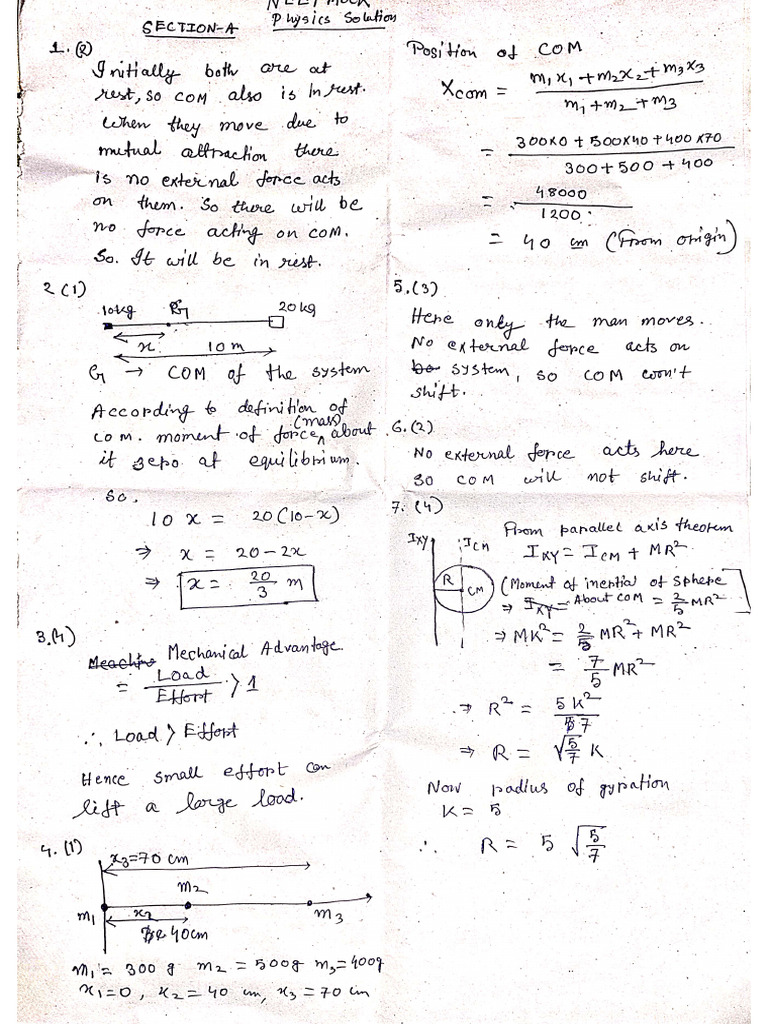 NEET MOCK
Physics Solution
SECTION-A
1. (2)
Initially both are at
rest, so COM also is in rest.
When they move due to
mutual attraction there
is no external force acts
on them. So there will be
no force acting on COM.
So. It will be in rest.
2 (1)
10kg G 20kg
x 10 m
G → COM of the system
According to definition of
com. moment of force (mass) about
it zero at equilibrium.
So.
10 x = 20(10-x)
⇒ x = 20-2x
⇒ x = 20/3 m
3.(4)
Mechanical Advantage
= Load/Effort > 1
∴ Load > Effort
Hence small effort can
lift a large load.
4. (1)
x3=70 cm
m2
m1 x2 m3
40cm
m1 = 300 g m2 = 500g m3=400g
x1=0, x2=40 cm, x3=70 cm
Position of COM
Xcom = (m1x1+m2x2+m3x3)/(m1+m2+m3)
= (300×0+500×40+400×70)/(300+500+400)
= 48000/1200
= 40 cm (From origin)
5.(3)
Here only the man moves.
No external force acts on
system, so COM won't
shift.
6.(2)
No external force acts here
so COM will not shift.
7. (4)
From parallel axis theorem
IXY ICM IXY = ICM + MR²
R CM (Moment of inertia of sphere
⇒ About COM = 2/5 MR²
⇒ MK² = 2/5 MR² + MR²
= 7/5 MR²
⇒ R² = 5K²/7
⇒ R = √(5/7) K
Now radius of gyration
K = 5
∴ R = 5 √(5/7)